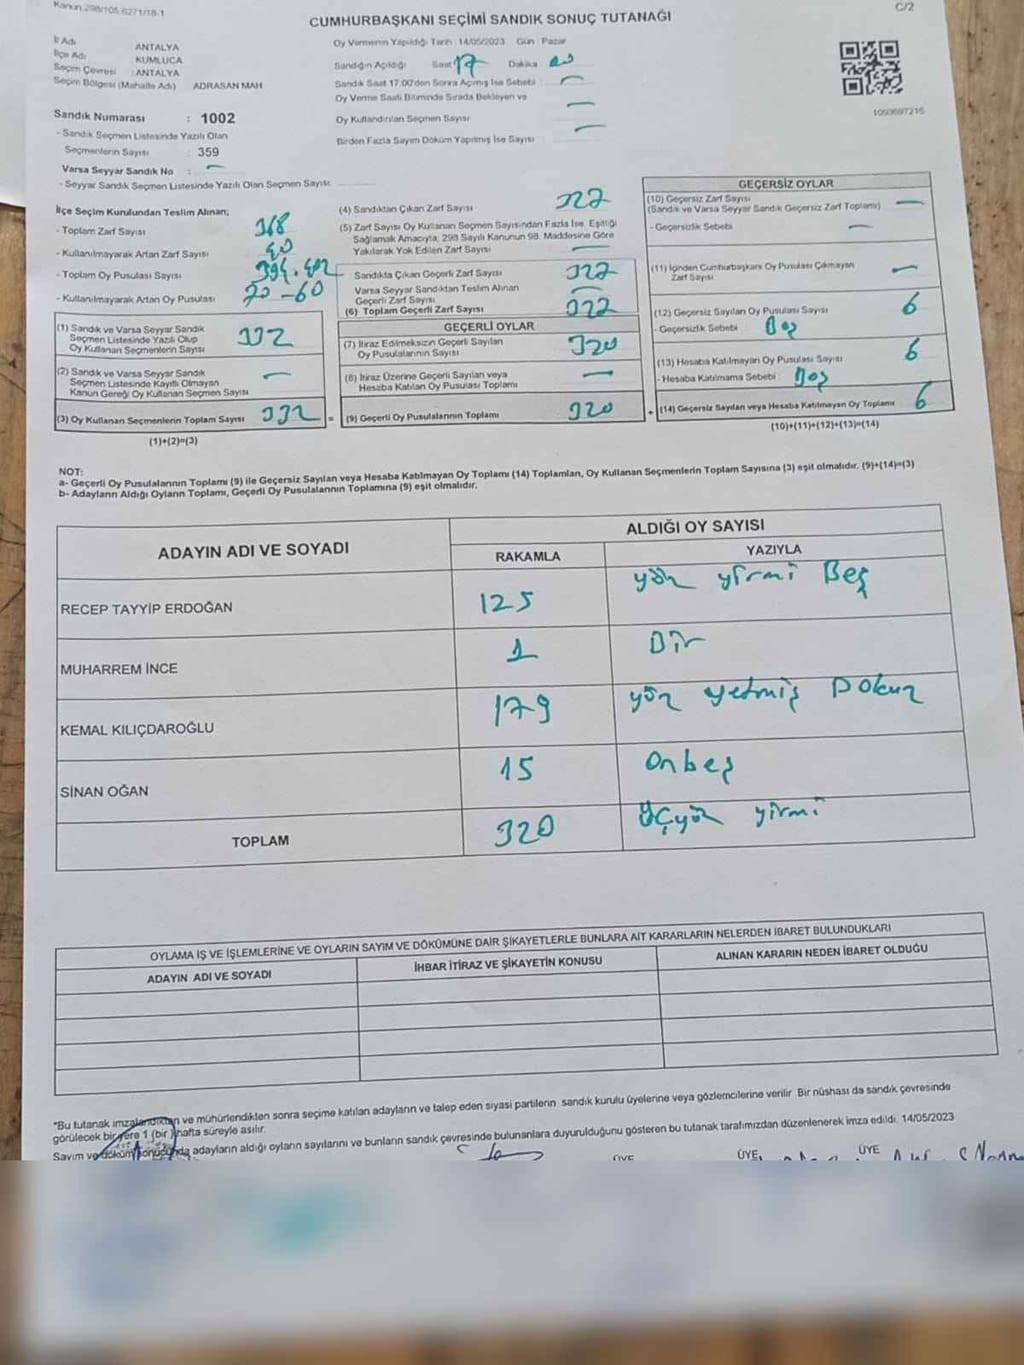 Kanun:298/105 6271/18-1
C/2
CUMHURBAŞKANI SEÇİMİ SANDIK SONUÇ TUTANAĞI
İl Adı ANTALYA
İlçe Adı KUMLUCA
Seçim Çevresi : ANTALYA
Seçim Bölgesi (Mahalle Adı) ADRASAN MAH
Sandık Numarası : 1002
- Sandık Seçmen Listesinde Yazılı Olan
Seçmenlerin Sayısı : 359
Varsa Seyyar Sandık No : -
- Seyyar Sandık Seçmen Listesinde Yazılı Olan Seçmen Sayısı:
Oy Vermenin Yapıldığı Tarih : 14/05/2023 Gün : Pazar
Sandığın Açıldığı Saat 17 Dakika
Sandık Saat 17:00'den Sonra Açımış İse Sebebi : -
Oy Verme Saati Bitiminde Sırada Bekleyen ve
Oy Kullandırılan Seçmen Sayısı -
Birden Fazla Sayım Döküm Yapılmış İse Sayısı -
1093697216
İlçe Seçim Kurulundan Teslim Alınan;
- Toplam Zarf Sayısı 368
- Kullanılmayarak Artan Zarf Sayısı
- Toplam Oy Pusulası Sayısı
- Kullanılmayarak Artan Oy Pusulası 70-60
(1) Sandık ve Varsa Seyyar Sandık
Seçmen Listesinde Yazılı Olup
Oy Kullanan Seçmenlerin Sayısı 332
(2) Sandık ve Varsa Seyyar Sandık
Seçmen Listesinde Kayıtlı Olmayan
Kanun Gereği Oy Kullanan Seçmen Sayısı -
(3) Oy Kullanan Seçmenlerin Toplam Sayısı 332 =
(1)+(2)=(3)
(4) Sandıktan Çıkan Zarf Sayısı 327
(5) Zarf Sayısı Oy Kullanan Seçmen Sayısından Fazla İse, Eşitliği
Sağlamak Amacıyla, 298 Sayılı Kanunun 98. Maddesine Göre
Yakılarak Yok Edilen Zarf Sayısı -
Sandıkta Çıkan Geçerli Zarf Sayısı 327
Varsa Seyyar Sandıktan Teslim Alınan
Geçerli Zarf Sayısı -
(6) Toplam Geçerli Zarf Sayısı
GEÇERLİ OYLAR
(7) İtiraz Edilmeksizin Geçerli Sayılan
Oy Pusulalarının Sayısı 320
(8) İtiraz Üzerine Geçerli Sayılan veya
Hesaba Katılan Oy Pusulası Toplamı -
(9) Geçerli Oy Pusulalarının Toplamı 320 +
GEÇERSİZ OYLAR
(10) Geçersiz Zarf Sayısı
(Sandık ve Varsa Seyyar Sandık Geçersiz Zarf Toplamı) -
- Geçersizlik Sebebi -
(11) İçinden Cumhurbaşkanı Oy Pusulası Çıkmayan
Zarf Sayısı -
(12) Geçersiz Sayılan Oy Pusulası Sayısı 6
- Geçersizlik Sebebi Boş
(13) Hesaba Katılmayan Oy Pusulası Sayısı 6
- Hesaba Katılmama Sebebi : Boş
(14) Geçersiz Sayılan veya Hesaba Katılmayan Oy Toplamı 6
(10)+(11)+(12)+(13)=(14)
NOT:
a- Geçerli Oy Pusulalarının Toplamı (9) ile Geçersiz Sayılan veya Hesaba Katılmayan Oy Toplamı (14) Toplamları, Oy Kullanan Seçmenlerin Toplam Sayısına (3) eşit olmalıdır. (9)+(14)=(3)
b- Adayların Aldığı Oyların Toplamı, Geçerli Oy Pusulalarının Toplamına (9) eşit olmalıdır.
ADAYIN ADI VE SOYADI
ALDIĞI OY SAYISI
RAKAMLA YAZIYLA
RECEP TAYYİP ERDOĞAN 125 yöz yirmi Beş
MUHARREM İNCE 1 Bir
KEMAL KILIÇDAROĞLU 179 yöz yetmiş Dokuz
SİNAN OĞAN 15 onbeş
TOPLAM 320 üçyöz yirmi
OYLAMA İŞ VE İŞLEMLERİNE VE OYLARIN SAYIM VE DÖKÜMÜNE DAİR ŞİKAYETLERLE BUNLARA AİT KARARLARIN NELERDEN İBARET BULUNDUKLARI
ADAYIN ADI VE SOYADI İHBAR İTİRAZ VE ŞİKAYETİN KONUSU ALINAN KARARIN NEDEN İBARET OLDUĞU
"Bu tutanak imzalandıktan ve mühürlendikten sonra seçime katılan adayların ve talep eden siyasi partilerin sandık kurulu üyelerine veya gözlemcilerine verilir. Bir nüshası da sandık çevresinde
görülecek bir yere 1 (bir) hafta süreyle asılır.
Sayım ve döküm sonucunda adayların aldığı oyların sayılarını ve bunların sandık çevresinde bulunanlara duyurulduğunu gösteren bu tutanak tarafımızdan düzenlenerek imza edildi. 14/05/2023
ÜYE ÜYE ÜYE